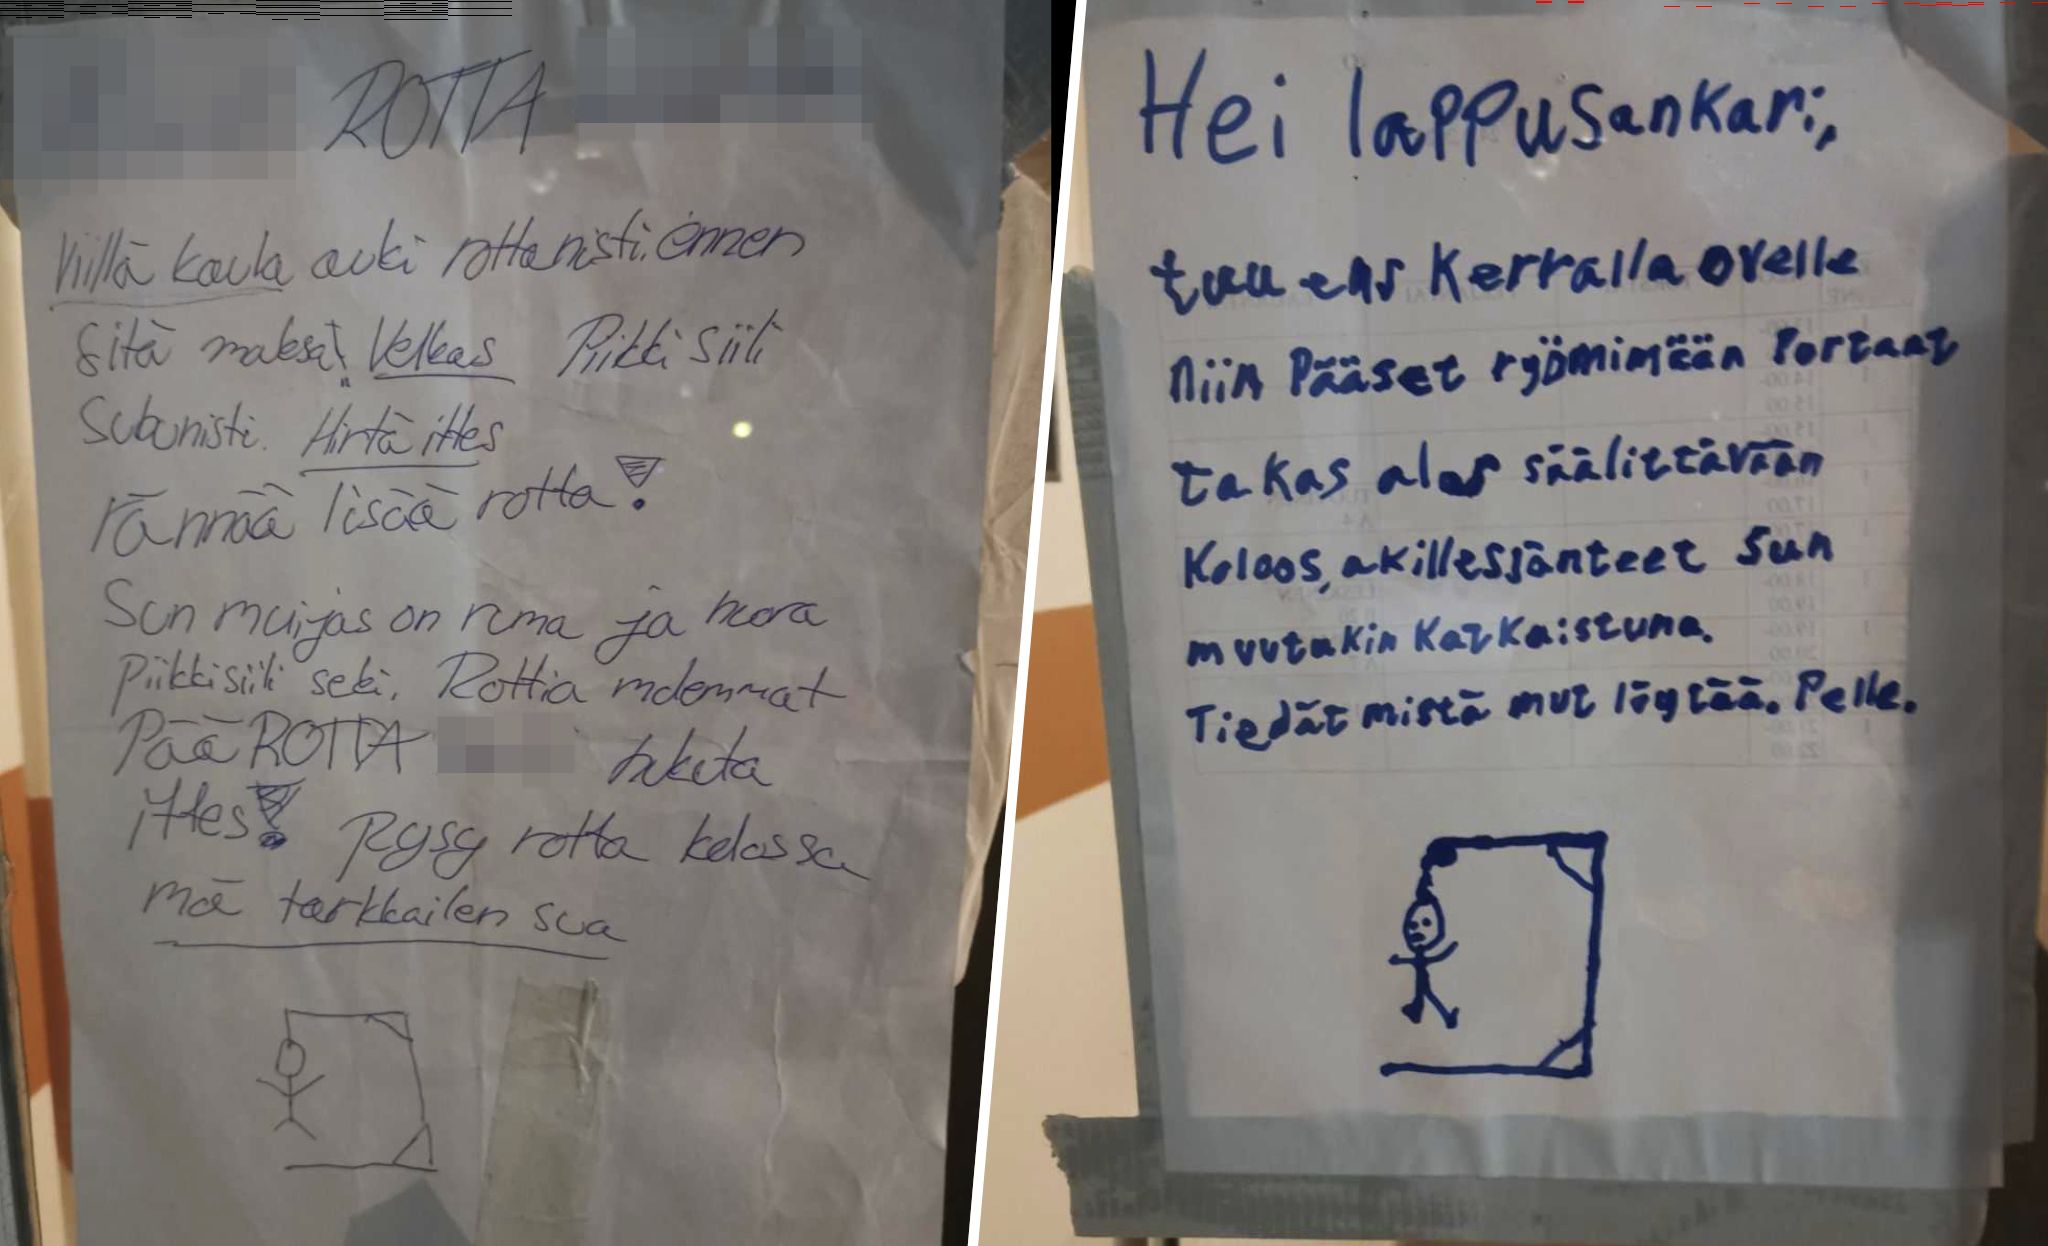 ROTTA
Viillä kaula auki rotta nisti. ennen
sitä maksa! Velkas Piikki siili
Subunisti. Hirtä ittes
rännää lisää rotta!
Sun muijas on ruma ja huora
Piikkisiili seki. Rottia molemmat
Pää ROTTA tukuta
ittes! Pysy rotta kolossa
mä tarkkailen sua
Hei lappusankari,
tuu ens kerralla ovelle
niin pääset ryömimään portaat
takas alas säälittävään
koloos, akillesjänteet sun
muutakin katkaistuna.
Tiedät mistä mut löytää. Pelle.